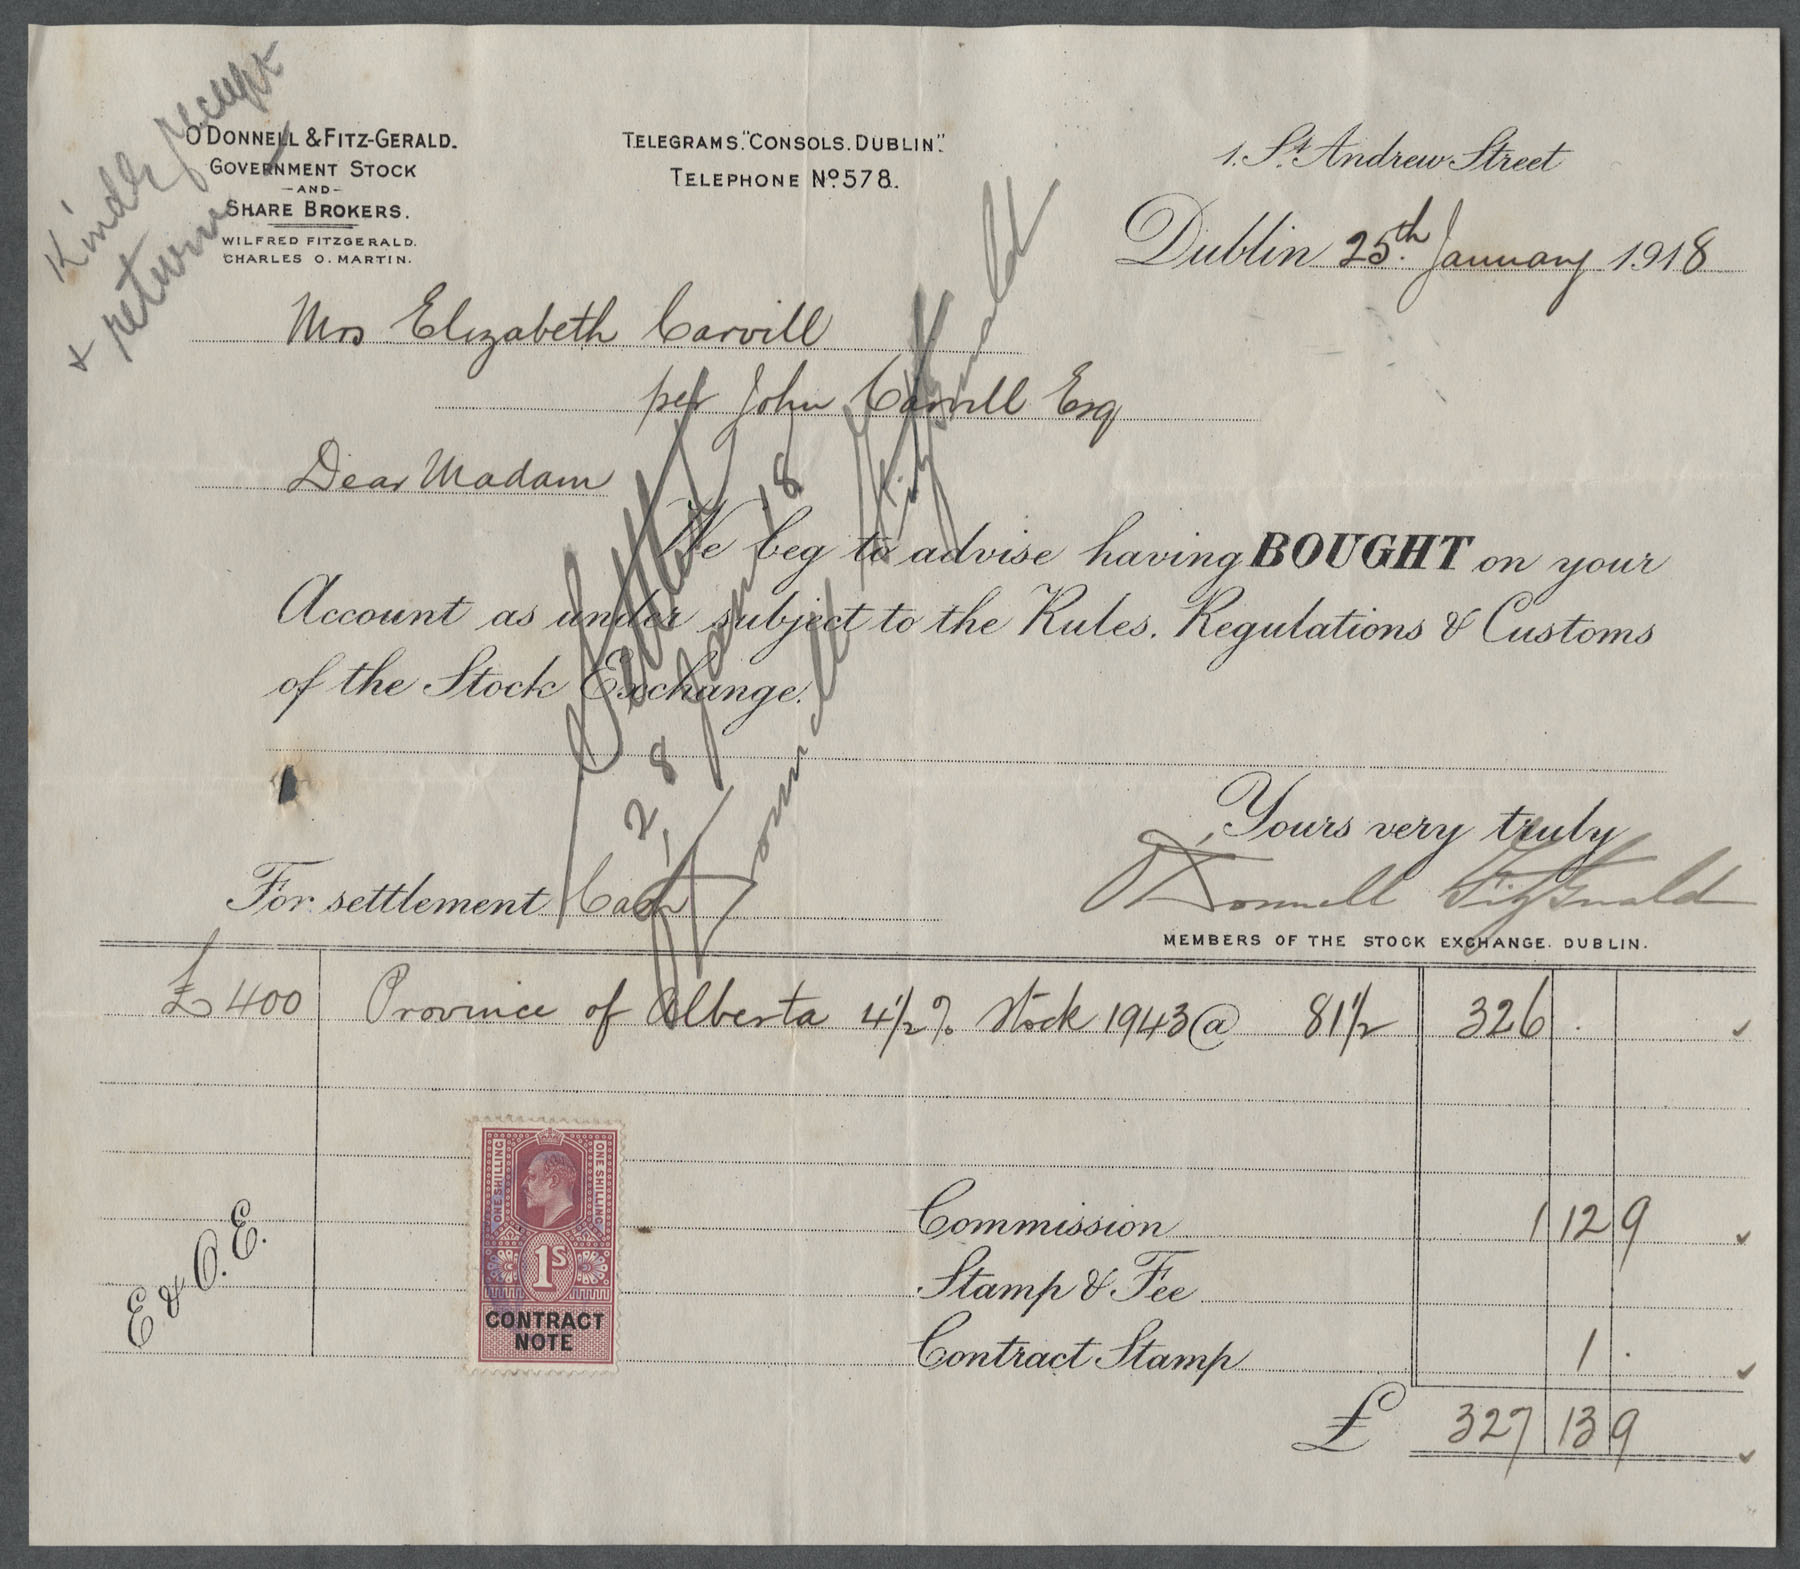 Kindly receipt
& return
O'DONNELL & FITZ-GERALD.
GOVERNMENT STOCK
-AND-
SHARE BROKERS.
WILFRED FITZGERALD.
CHARLES O. MARTIN.
TELEGRAMS. "CONSOLS. DUBLIN."
TELEPHONE No. 578.
1. St. Andrew Street
Dublin 25th. January 1918
Mrs Elizabeth Carvill
per John Carvill Esq
Dear Madam
We beg to advise having BOUGHT on your
Account as under subject to the Rules. Regulations & Customs
of the Stock Exchange.
Settled
28 Jany 18
O'Donnell Fitzgerald
Yours very truly
O'Donnell FitzGerald
MEMBERS OF THE STOCK EXCHANGE. DUBLIN.
For settlement Cash
£400 Province of Alberta 4 1/2 % Stock 1943 @ 81 1/2 326 .
ONE SHILLING
ONE SHILLING
1S
CONTRACT
NOTE
E & O. E.
Commission 1 12 9
Stamp & Fee
Contract Stamp 1 .
£ 327 13 9